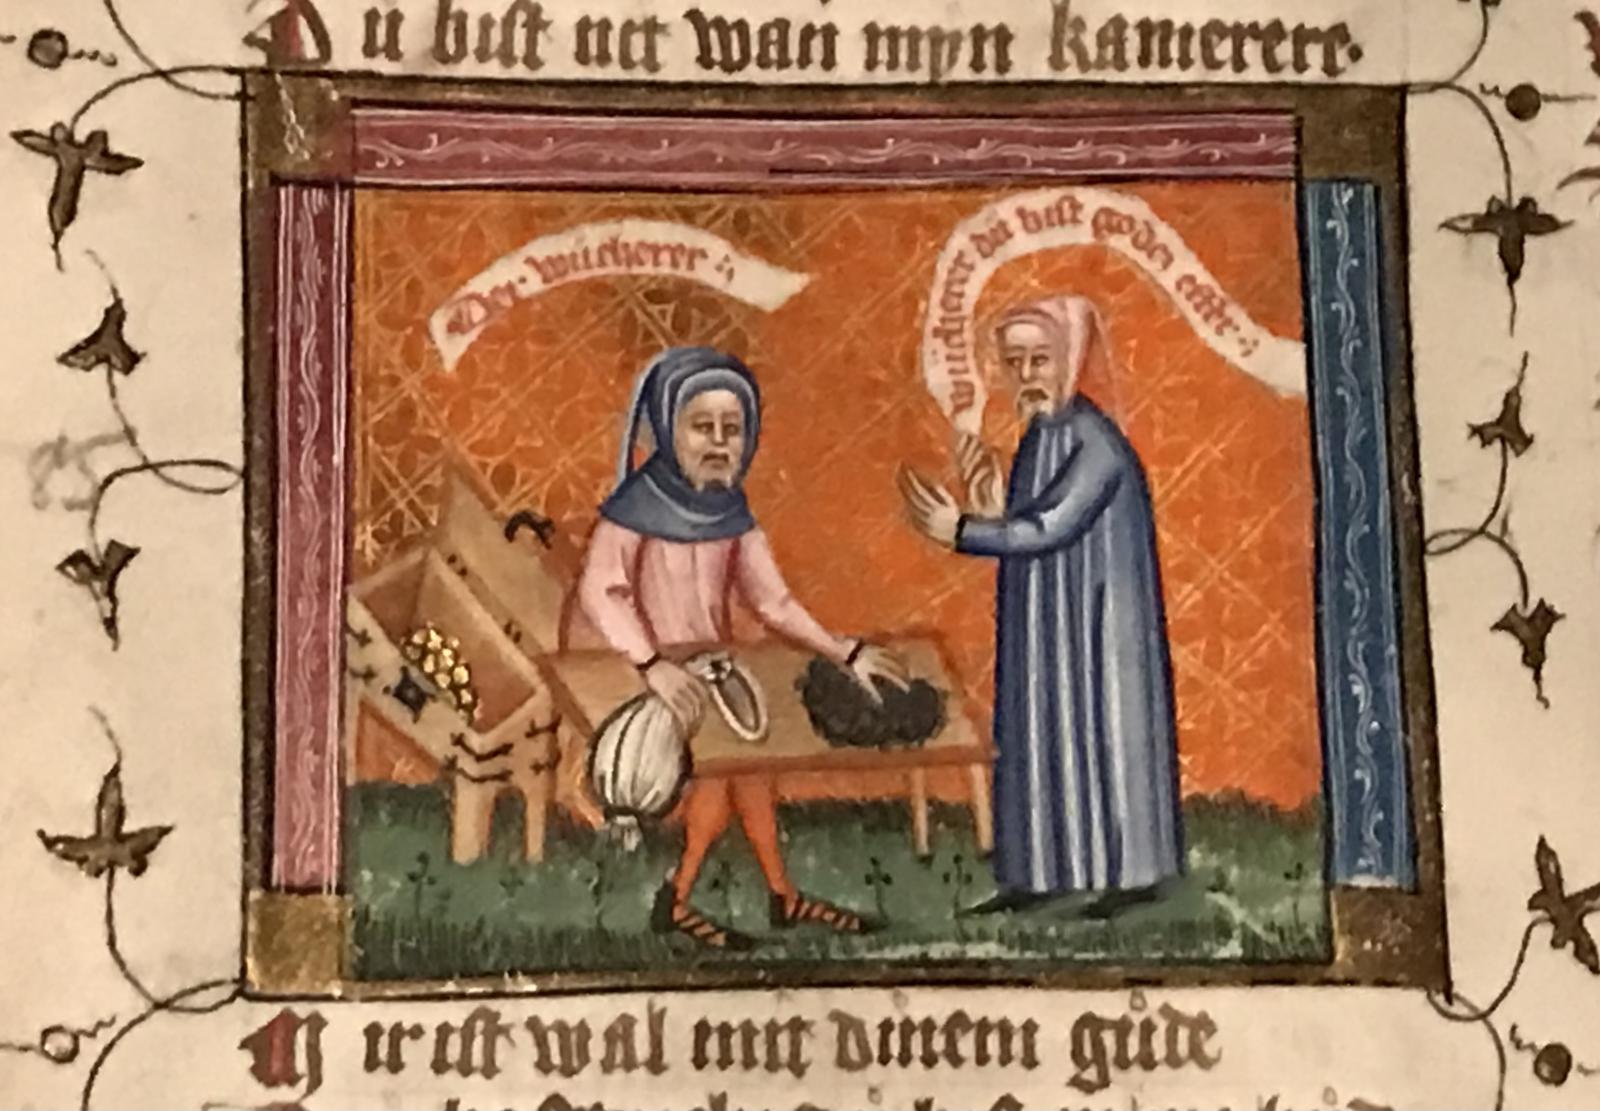 Du bist nit wan myn kamerere.
Der wůcherer
wůcherer du bist godes
Mir ist wal mit dinem gůde